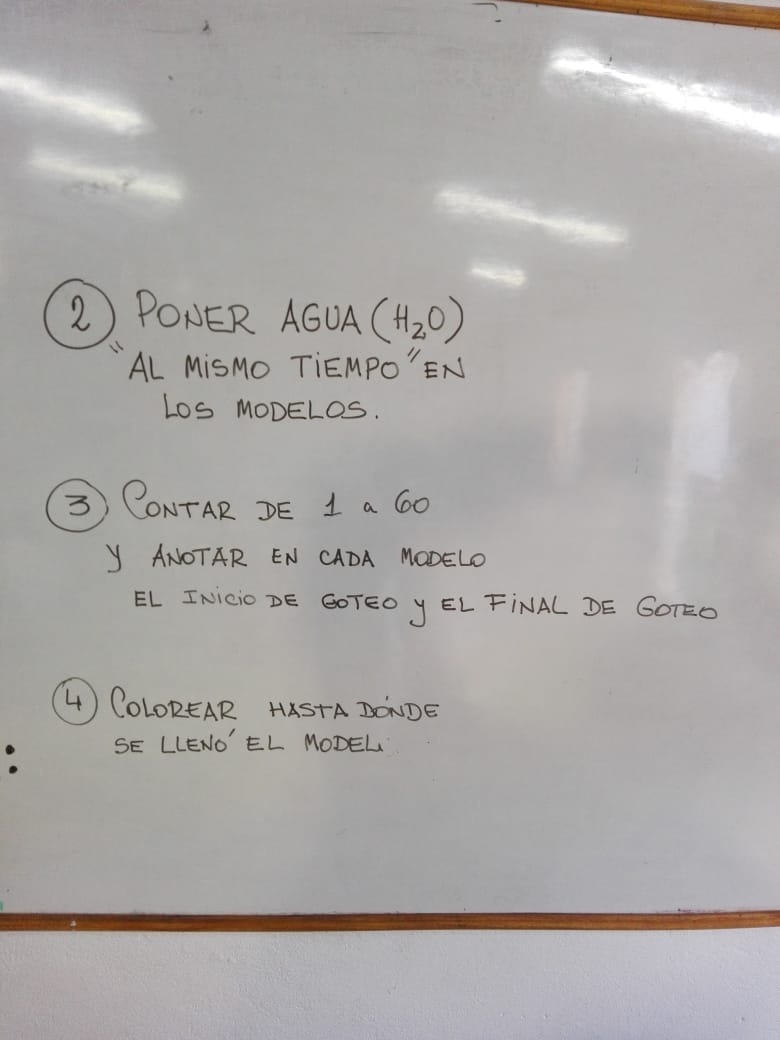 2 PONER AGUA (H₂O)
"AL MISMO TIEMPO" EN
LOS MODELOS.
3 CONTAR DE 1 a 60
y ANOTAR EN CADA MODELO
EL INICIO DE GOTEO y EL FINAL DE GOTEO
4 COLOREAR HASTA DÓNDE
SE LLENÓ EL MODEL